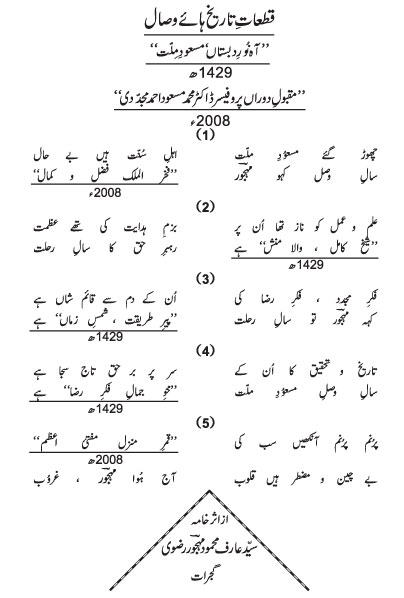 قطعاتِ تاریخ ہائے وصال
”آہ نُورِ دبستاں‘ مسعودِ ملّت“
1429ھ
”مقبولِ دوراں پروفیسر ڈاکٹر محمد مسعود احمد مجدّدی“
2008ء
(1)
چھوڑ گئے مسعودِ ملّت اہلِ سُنّت ہیں بے حال
سالِ وصل کہو مہجورؔ ”فخر الملک فضل و کمال“
2008ء
(2)
علم و عمل کو ناز تھا اُن پر بزمِ ہدایت کی تھے عظمت
”شیخ کامل ، والا منش“ ہے رہبرِ حق کا سالِ رحلت
1429ھ
(3)
فکرِ مجدد ، فکرِ رضا کی اُن کے دم سے قائم شاں ہے
کہہ مہجورؔ تو سالِ رحلت ”پیرِ طریقت ، شمسِ زماں“ ہے
1429ھ
(4)
تاریخ و تحقیق کا اُن کے سر پر بر حق تاج سجا ہے
سالِ وصلِ مسعودِ ملّت ”محوِ جمالِ فکرِ رضا“ ہے
1429ھ
(5)
پرنم پرنم آنکھیں سب کی ”قمرِ منزل مفتیٔ اعظم“
2008ھ
بے چین و مضطر ہیں قلوب آج ہُوا مہجورؔ ، غروب
از اثر خامہ
سیّد عارف محمود مہجورؔ رضوی
گجرات